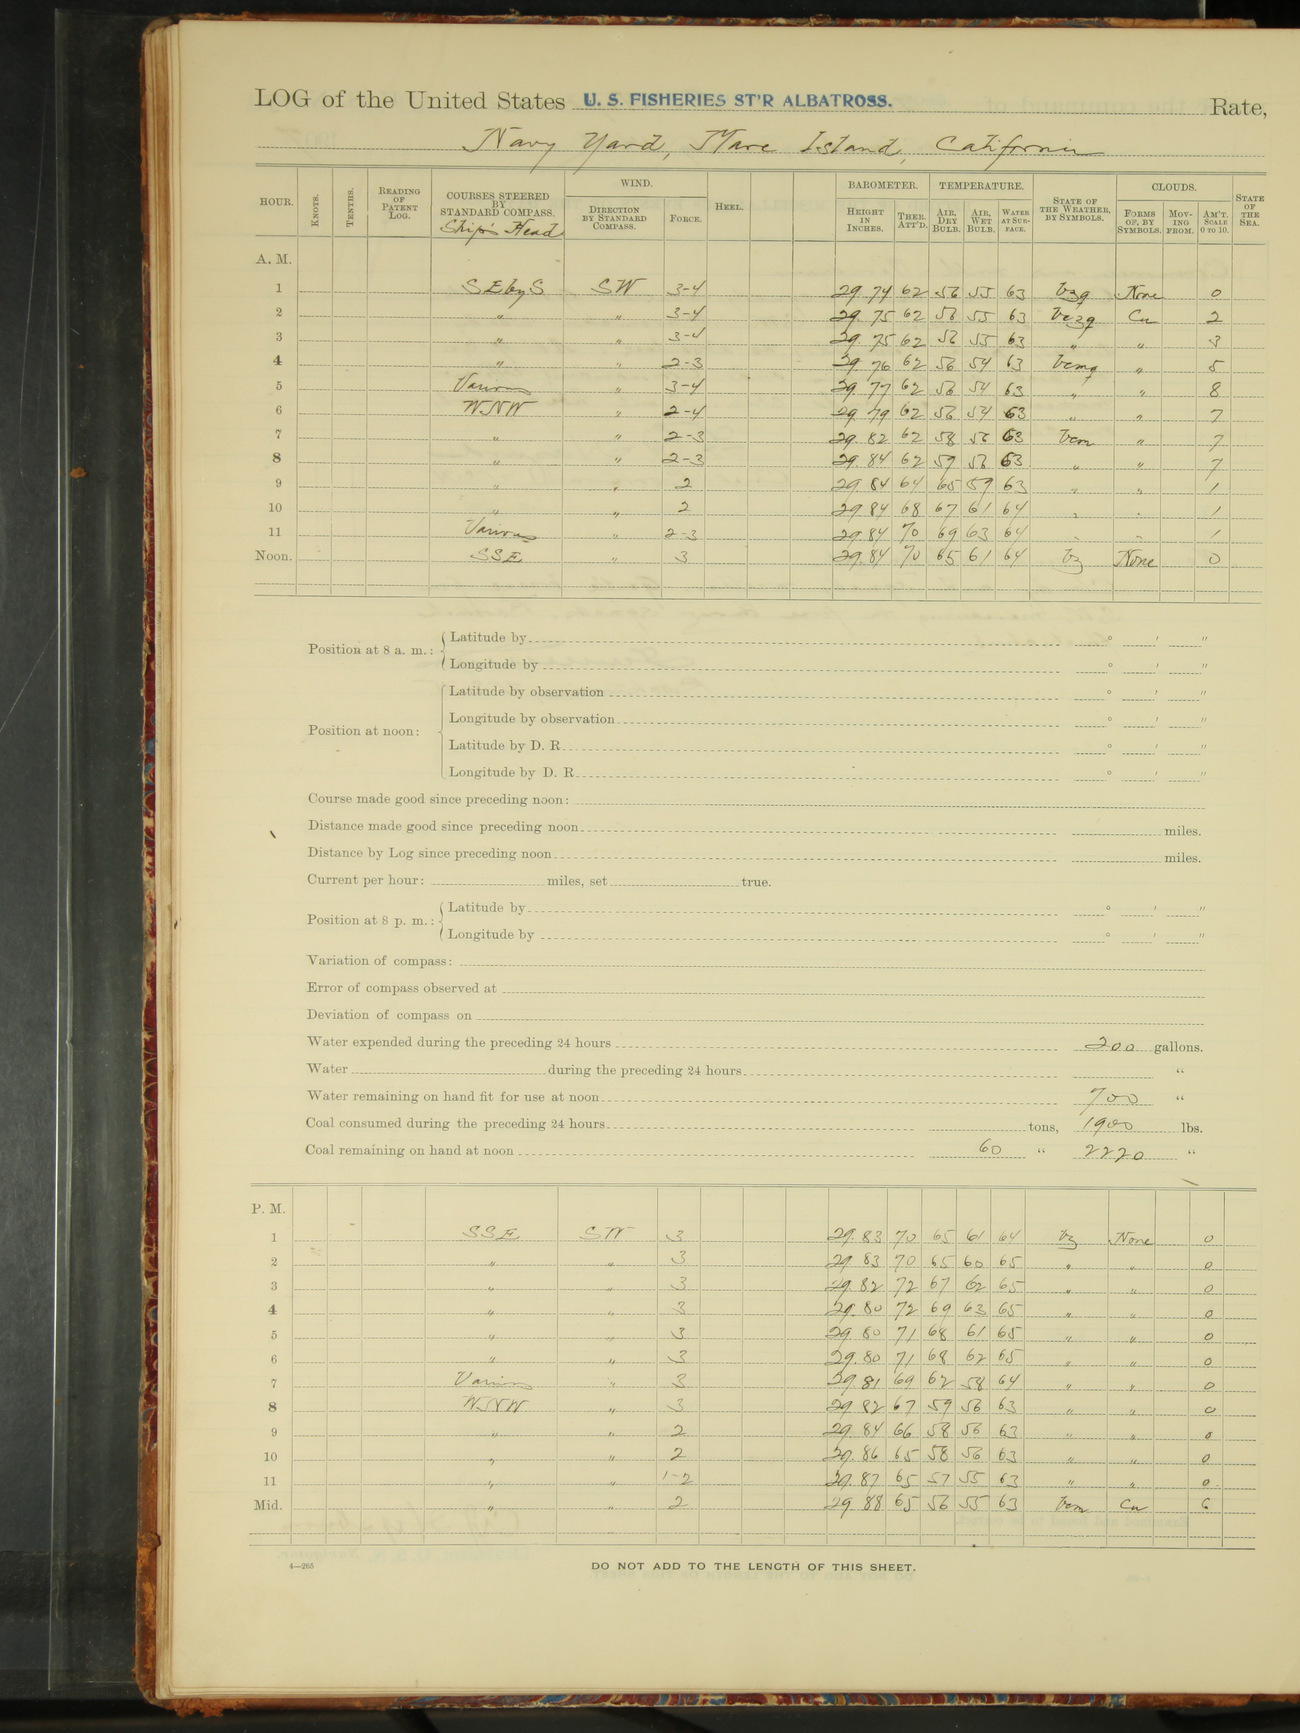 LOG of the United States U. S. FISHERIES ST'R ALBATROSS. Rate,
Navy Yard, Mare Island, California
HOUR. KNOTS. TENTHS. READING OF PATENT LOG. COURSES STEERED BY STANDARD COMPASS. Ship's Head WIND. DIRECTION BY STANDARD COMPASS. FORCE. HEEL. BAROMETER. HEIGHT IN INCHES. THER. ATT'D. TEMPERATURE. AIR, DRY BULB. AIR, WET BULB. WATER AT SURFACE. STATE OF THE WEATHER, BY SYMBOLS. CLOUDS. FORMS OF, BY SYMBOLS. MOVING FROM. AM'T. SCALE 0 TO 10. STATE OF THE SEA.
A. M.
1 SE by S SW 3-4 29.74 62 56 55 63 bzq None 0
2 " " 3-4 29.75 62 56 55 63 bczq Cu 2
3 " " 3-4 29.75 62 56 55 63 " " 3
4 " " 2-3 29.76 62 56 54 63 bcmq " 5
5 Various " 3-4 29.77 62 56 54 63 " " 8
6 WNW " 2-4 29.79 62 56 54 63 " " 7
7 " " 2-3 29.82 62 58 56 63 bcm " 7
8 " " 2-3 29.84 62 59 56 63 " " 7
9 " " 2 29.84 64 65 59 63 " " 1
10 " " 2 29.84 68 67 61 64 " " 1
11 Various " 2-3 29.84 70 69 63 64 " " 1
Noon. SSE " 3 29.84 70 65 61 64 bz None 0
Position at 8 a. m.: Latitude by ° ' "
Longitude by ° ' "
Position at noon: Latitude by observation ° ' "
Longitude by observation ° ' "
Latitude by D. R. ° ' "
Longitude by D. R. ° ' "
Course made good since preceding noon:
Distance made good since preceding noon miles.
Distance by Log since preceding noon miles.
Current per hour: miles, set true.
Position at 8 p. m.: Latitude by ° ' "
Longitude by ° ' "
Variation of compass:
Error of compass observed at
Deviation of compass on
Water expended during the preceding 24 hours 200 gallons.
Water during the preceding 24 hours "
Water remaining on hand fit for use at noon 700 "
Coal consumed during the preceding 24 hours tons, 1900 lbs.
Coal remaining on hand at noon 60 " 2220 "
P. M.
1 SSE SW 3 29.83 70 65 61 64 bz None 0
2 " " 3 29.83 70 65 60 65 " " 0
3 " " 3 29.82 72 67 62 65 " " 0
4 " " 3 29.80 72 69 63 65 " " 0
5 " " 3 29.80 71 68 61 65 " " 0
6 " " 3 29.80 71 68 62 65 " " 0
7 Various " 3 29.81 69 62 58 64 " " 0
8 WNW " 3 29.82 67 59 56 63 " " 0
9 " " 2 29.84 66 58 56 63 " " 0
10 " " 2 29.86 65 58 56 63 " " 0
11 " " 1-2 29.87 65 57 55 63 " " 0
Mid. " " 2 29.88 65 56 55 63 bcm Cu 6
4—265
DO NOT ADD TO THE LENGTH OF THIS SHEET.